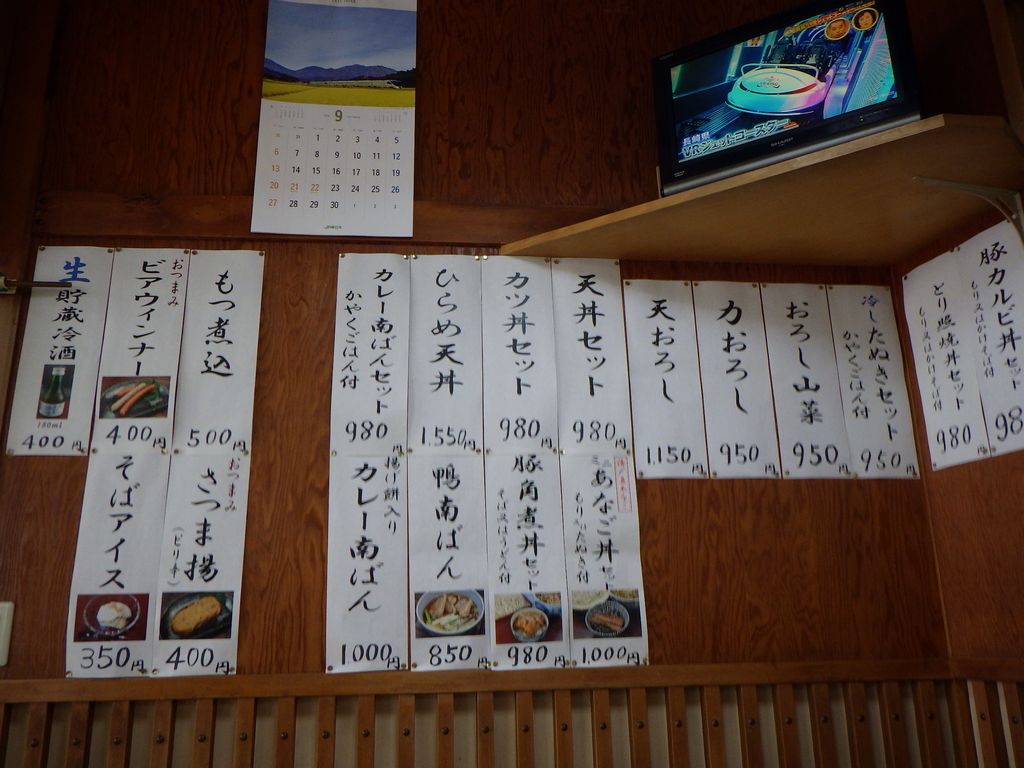 9
30 31 1 2 3 4 5
6 7 8 9 10 11 12
13 14 15 16 17 18 19
20 21 22 23 24 25 26
27 28 29 30 1 2 3
長崎県
VRジェットコースター
SHARP
生貯蔵冷酒
180ml
400円
おつまみ
ビアウィンナー
400円
もつ煮込
500円
そばアイス
350円
おつまみ
さつま揚
(ピリ辛)
400円
カレー南ばんセット
かやくごはん付
980円
ひらめ天丼
1,550円
カツ丼セット
980円
天丼セット
980円
天おろし
1,150円
力おろし
950円
おろし山菜
950円
冷したぬきセット
かやくごはん付
950円
とり照焼丼セット
もり又はかけそば付
980円
豚カルビ丼セット
もり又はかけそば付
98
揚げ餅入り
カレー南ばん
1000円
鴨南ばん
850円
豚角煮丼セット
そば又はうどん付
980円
ミニあなご丼セット
もり又はたぬき付
1,000円